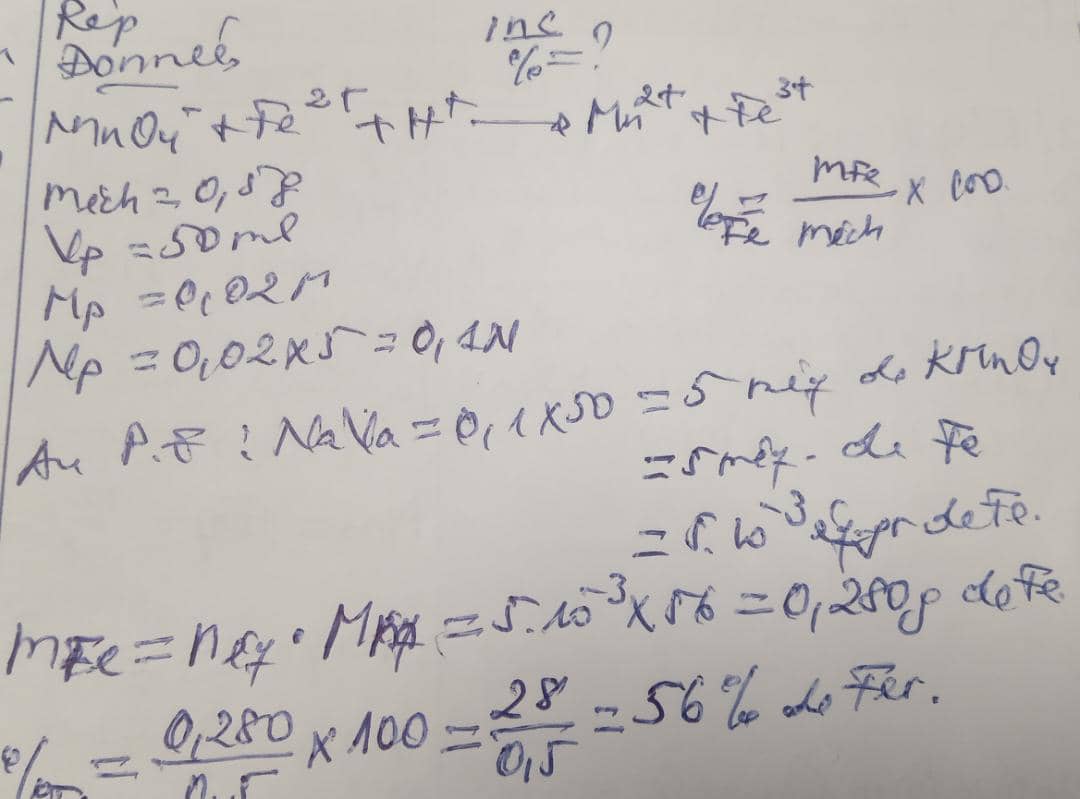 Rép
Données
Inc
%=?
MnO4⁻ + Fe²⁺ + H⁺ → Mn²⁺ + Fe³⁺
méch = 0,5g
%Fe = mFe/méch x 100.
Vp = 50ml
Mp = 0,02M
Np = 0,02x5 = 0,1N
Au P.E : NaVa = 0,1x50 = 5 méq de KMnO4
= 5 méq. de Fe
= 5.10⁻³ éq.gr de Fe.
mFe = néq . = 5.10⁻³ x 56 = 0,280g de Fe.
% = 0,280/0,5 x 100 = 28/0,5 = 56% de Fer.